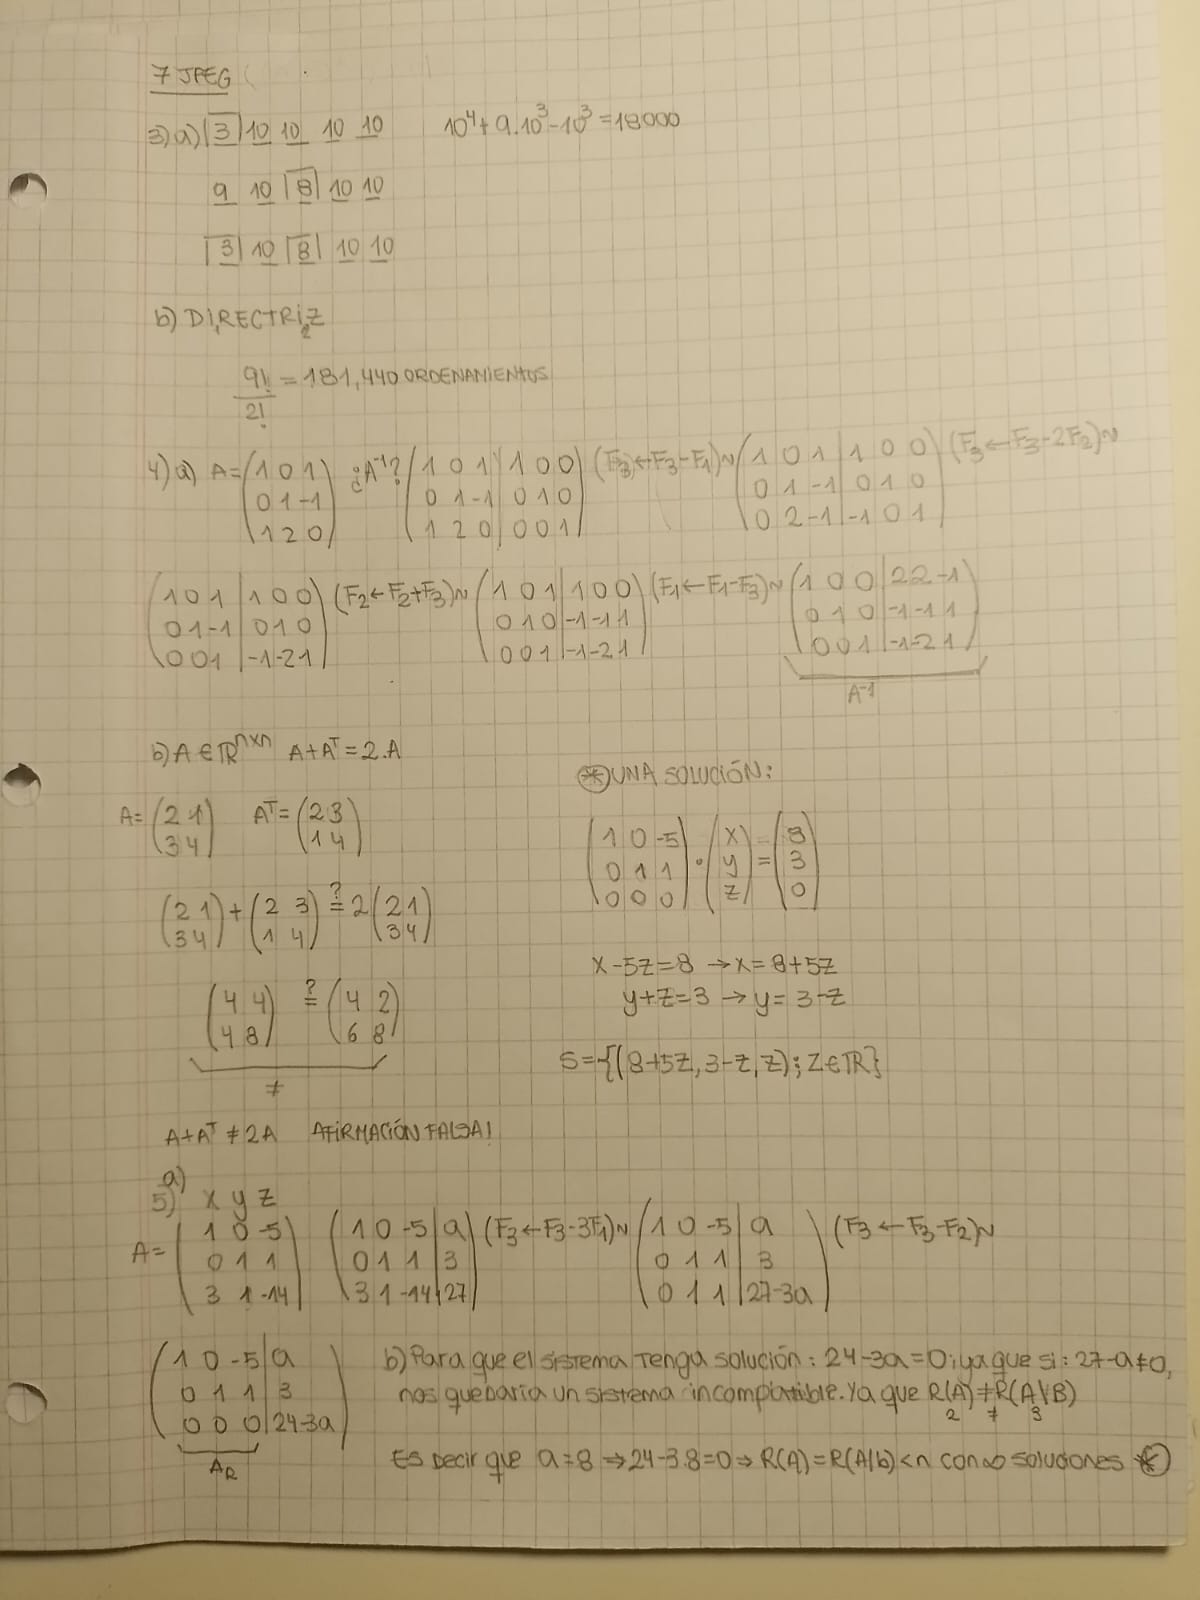 7 JPEG
3) a) |3| 10 10 10 10    10⁴ + 9.10³ - 10³ = 18000
9 10 |8| 10 10
|3| 10 |8| 10 10
b) DIRECTRIZ
2
9!/2! = 181,440 ORDENAMIENTOS
4) a) A = (1 0 1 / 0 1 -1 / 1 2 0) ¿A⁻¹? (1 0 1 | 1 0 0 / 0 1 -1 | 0 1 0 / 1 2 0 | 0 0 1) (F₃ ← F₃ - F₁) ~ (1 0 1 | 1 0 0 / 0 1 -1 | 0 1 0 / 0 2 -1 | -1 0 1) (F₃ ← F₃ - 2F₂) ~
(1 0 1 | 1 0 0 / 0 1 -1 | 0 1 0 / 0 0 1 | -1 -2 1) (F₂ ← F₂ + F₃) ~ (1 0 1 | 1 0 0 / 0 1 0 | -1 -1 1 / 0 0 1 | -1 -2 1) (F₁ ← F₁ - F₃) ~ (1 0 0 | 2 2 -1 / 0 1 0 | -1 -1 1 / 0 0 1 | -1 -2 1)
A⁻¹
b) A ∈ ℝⁿˣⁿ A + Aᵀ = 2.A
A = (2 1 / 3 4) Aᵀ = (2 3 / 1 4)
(2 1 / 3 4) + (2 3 / 1 4) ≟ 2 (2 1 / 3 4)
(4 4 / 4 8) ≟ (4 2 / 6 8)
≠
A + Aᵀ ≠ 2A AFIRMACIÓN FALSA!
⊛ UNA SOLUCIÓN:
(1 0 -5 / 0 1 1 / 0 0 0) · (x / y / z) = (8 / 3 / 0)
x - 5z = 8 → x = 8 + 5z
y + z = 3 → y = 3 - z
S = {(8 + 5z, 3 - z, z); z ∈ ℝ}
a)
5) x y z
A = (1 0 -5 / 0 1 1 / 3 1 -14) (1 0 -5 | a / 0 1 1 | 3 / 3 1 -14 | 27) (F₃ ← F₃ - 3F₁) ~ (1 0 -5 | a / 0 1 1 | 3 / 0 1 1 | 27-3a) (F₃ ← F₃ - F₂) ~
(1 0 -5 | a / 0 1 1 | 3 / 0 0 0 | 24-3a)
A_R
b) Para que el sistema tenga solución: 24 - 3a = 0; ya que si: 27 - a ≠ 0,
nos quedaría un sistema incompatible. Ya que R(A) ≠ R(A|B)
2 ≠ 3
Es decir que a = 8 ⇒ 24 - 3.8 = 0 ⇒ R(A) = R(A|b) < n con ∞ soluciones ⊛